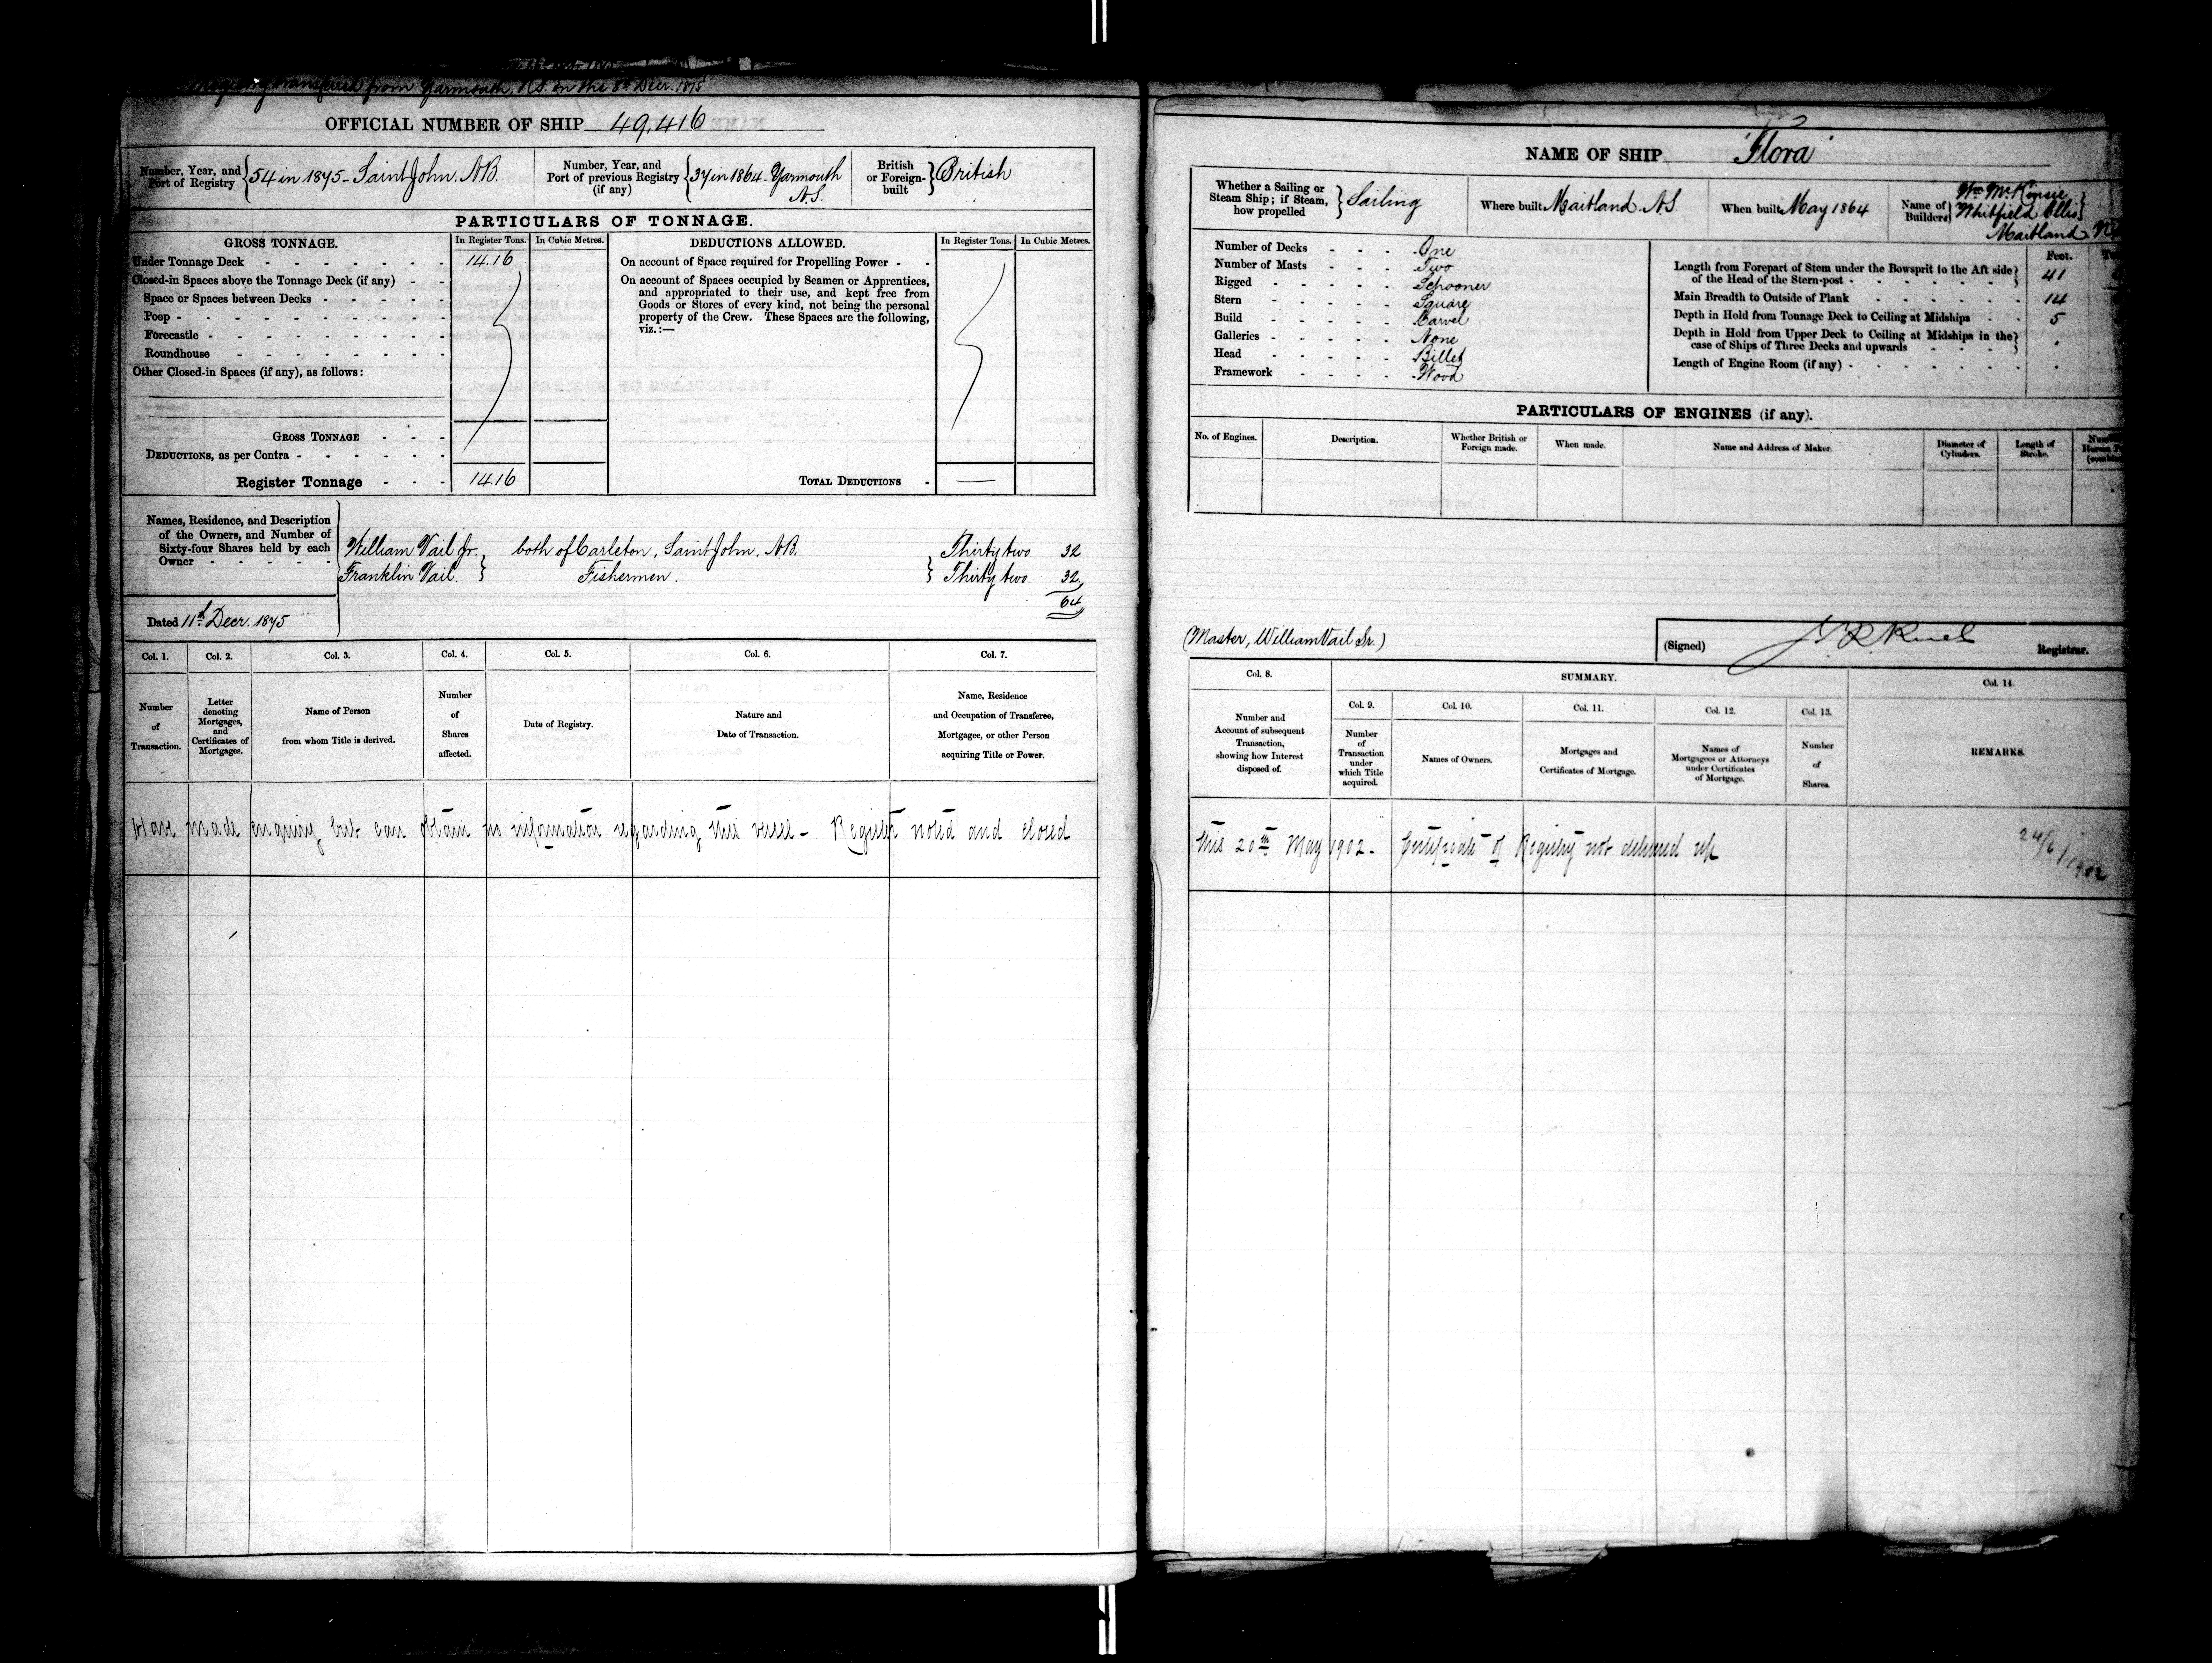 Registry transferred from Yarmouth, N.S. on the 8th Decr. 1875
OFFICIAL NUMBER OF SHIP 49,416
Number, Year, and Port of Registry 54 in 1875 - Saint John, N.B.
Number, Year, and Port of previous Registry (if any) 37 in 1864 - Yarmouth N.S.
British or Foreign-built British
PARTICULARS OF TONNAGE.
GROSS TONNAGE. In Register Tons. In Cubic Metres.
Under Tonnage Deck - 14.16
Closed-in Spaces above the Tonnage Deck (if any) -
Space or Spaces between Decks -
Poop -
Forecastle -
Roundhouse -
Other Closed-in Spaces (if any), as follows:
GROSS TONNAGE -
DEDUCTIONS, as per Contra -
Register Tonnage - 14.16
DEDUCTIONS ALLOWED. In Register Tons. In Cubic Metres.
On account of Space required for Propelling Power -
On account of Spaces occupied by Seamen or Apprentices,
and appropriated to their use, and kept free from
Goods or Stores of every kind, not being the personal
property of the Crew. These Spaces are the following,
viz.:—
TOTAL DEDUCTIONS - —
Names, Residence, and Description
of the Owners, and Number of
Sixty-four Shares held by each
Owner -
William Vail Jr. both of Carleton, Saint John, N.B. Thirty two 32
Franklin Vail. Fishermen. Thirty two 32
64
Dated 11th Decr. 1875
Col. 1. Col. 2. Col. 3. Col. 4. Col. 5. Col. 6. Col. 7.
Number of Transaction.
Letter denoting Mortgages, and Certificates of Mortgages.
Name of Person from whom Title is derived.
Number of Shares affected.
Date of Registry.
Nature and Date of Transaction.
Name, Residence and Occupation of Transferee, Mortgagee, or other Person acquiring Title or Power.
Have made enquiry but can obtain no information regarding this vessel - Register noted and closed
NAME OF SHIP "Flora"
Whether a Sailing or Steam Ship; if Steam, how propelled Sailing
Where built Maitland N.S.
When built May 1864
Name of Builders Wm McKinsie
Whitfield Ellis
Maitland
Number of Decks - One
Number of Masts - Two
Rigged - Schooner
Stern - Square
Build - Carvel
Galleries - None
Head - Billet
Framework - Wood
Feet.
Length from Forepart of Stem under the Bowsprit to the Aft side
of the Head of the Stern-post - 41
Main Breadth to Outside of Plank - 14
Depth in Hold from Tonnage Deck to Ceiling at Midships - 5
Depth in Hold from Upper Deck to Ceiling at Midships in the
case of Ships of Three Decks and upwards -
Length of Engine Room (if any) -
PARTICULARS OF ENGINES (if any).
No. of Engines. Description. Whether British or Foreign made. When made. Name and Address of Maker. Diameter of Cylinders. Length of Stroke.
(Master, William Vail Sr.)
(Signed) Registrar.
Col. 8. SUMMARY. Col. 14.
Col. 9. Col. 10. Col. 11. Col. 12. Col. 13.
Number and Account of subsequent Transaction, showing how Interest disposed of.
Number of Transaction under which Title acquired.
Names of Owners.
Mortgages and Certificates of Mortgage.
Names of Mortgagees or Attorneys under Certificates of Mortgage.
Number of Shares.
REMARKS.
this 20th May 1902. Certificate of Registry not delivered up
24/6/1902